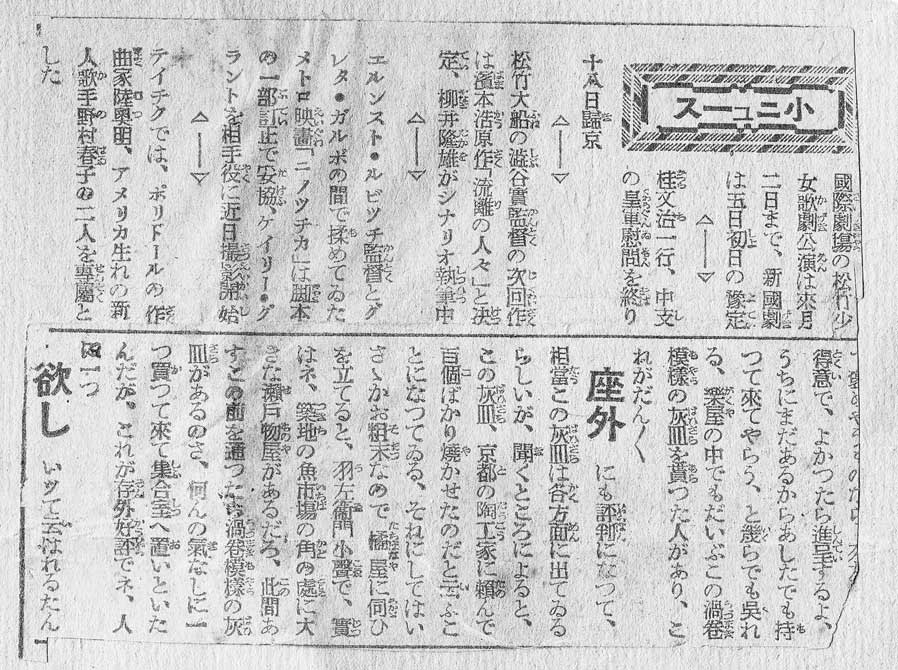 小ニュース
國際劇場の松竹少
女歌劇公演は來月
二日まで、新國劇
は五日初日の豫定
△――▽
桂文治一行、中支
の皇軍慰問を終り
十八日歸京
△――▽
松竹大船の澁谷實監督の次回作
は濱本浩原作「流離の人々」と決
定、柳井隆雄がシナリオ執筆中
△――▽
エルンスト・ルビツチ監督とグ
レタ・ガルボの間で揉めてゐた
メトロ映畫「ニノツチカ」は脚本
の一部訂正で妥協、ケイリー・グ
ラントを相手役に近日撮影開始
△――▽
テイチクでは、ポリドールの作
曲家陸奥明、アメリカ生れの新
人歌手野村春子の二人を專屬と
した
得意で、よかつたら進呈するよ、
うちにまだあるからあしたでも持
つて來てやらう、と幾らでも呉れ
る、樂屋の中でもだいぶこの渦卷
模樣の灰皿を貰つた人があり、こ
れがだん〱
座外 にも評判になつて、
相當この灰皿は各方面に出てゐる
らしいが、聞くところによると、
この灰皿、京都の陶工家に頼んで
百個ばかり燒かせたのだと云ふこ
とになつてゐる、それにしてはい
さゝかお粗末なので、橘屋に伺ひ
を立てると、羽左衞門、小聲で、實
はネ、築地の魚市場の角の處に大
きな瀬戸物屋があるだろ、此間あ
すこの前を通つたら渦卷模樣の灰
皿があるのさ、何んの氣なしに一
つ買つて來て集合室へ置いといた
んだが、これが存外好評でネ、人
に一つ
欲し いツて云はれるたん